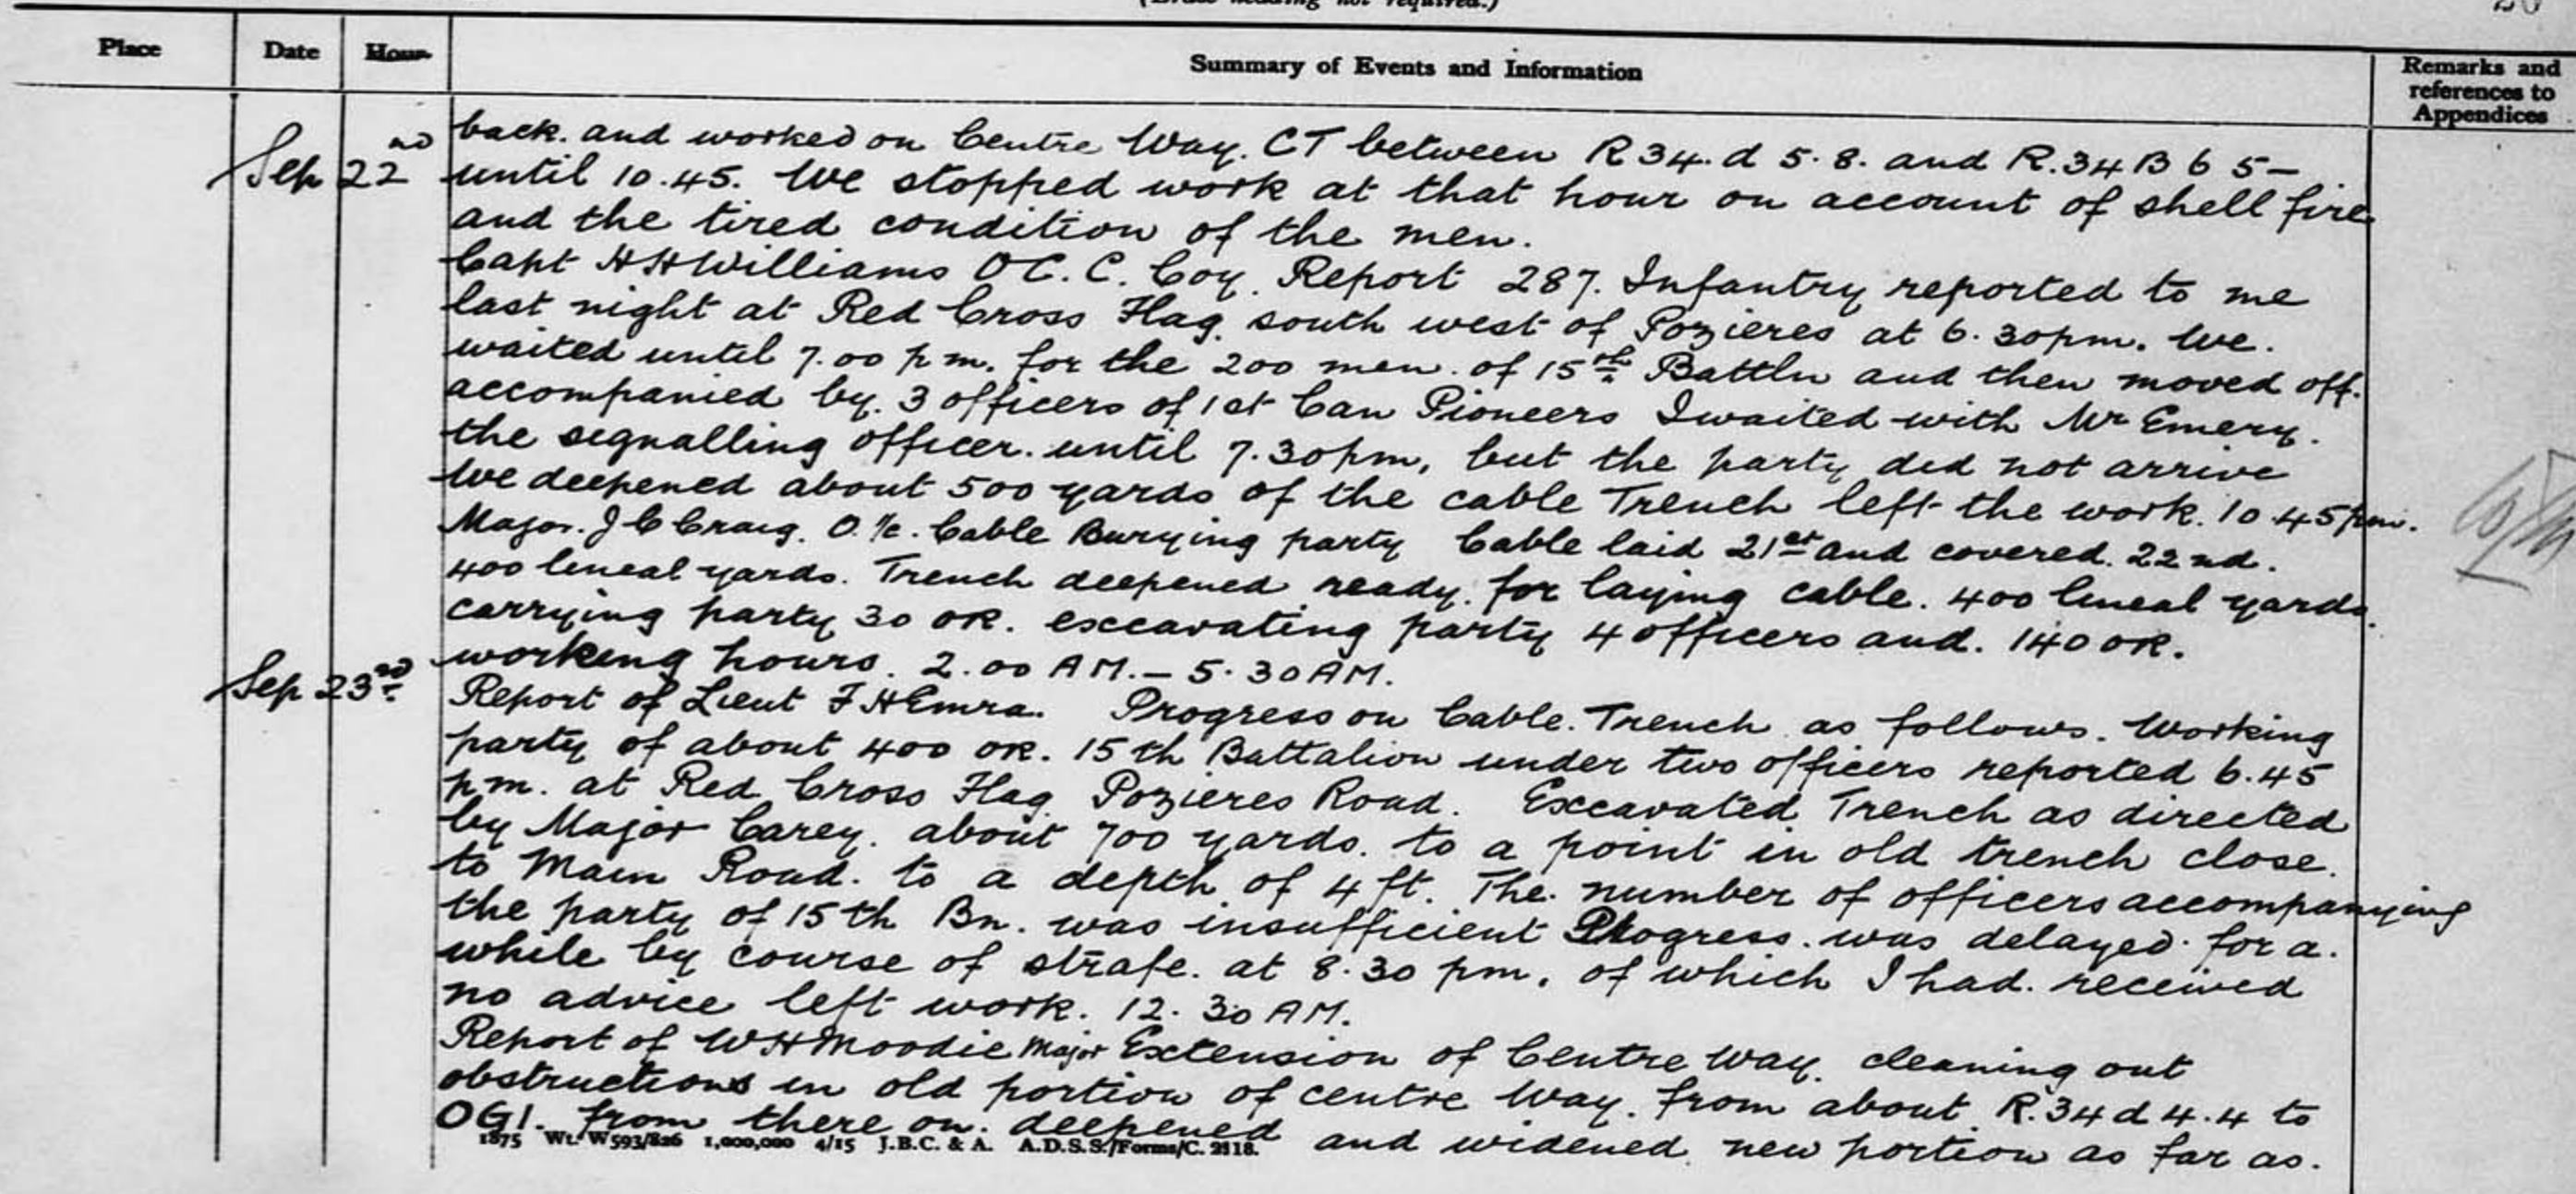 (Erase heading not required.)
Place Date Hour Summary of Events and Information Remarks and references to Appendices
Sep 22nd back. and worked on Centre Way. CT between R 34. d 5. 8. and R. 34 B 6 5 -
until 10.45. We stopped work at that hour on account of shell fire
and the tired condition of the men.
Capt H H Williams O C. C. Coy. Report 287. Infantry reported to me
last night at Red Cross Flag. south west of Pozieres at 6. 30 pm. We.
waited until 7.00 p m. for the 200 men. of 15th Battln and then moved off.
accompanied by. 3 officers of 1st Can Pioneers I waited with Mr Emery.
the segnalling officer. until 7.30 pm, but the party did not arrive
We deepened about 500 yards of the cable Trench left the work. 10.45 pm.
Major. J C Craig. O. i/c. Cable Burying party Cable laid 21st and covered. 22nd.
400 lineal yards. Trench deepened ready. for laying cable. 400 lineal yards.
carrying party 30 OR. excavating party 4 officers and. 140 OR.
working hours. 2.00 AM. - 5.30 AM.
Sep 23rd. Report of Lieut F H Emra. Progress on Cable. Trench as follows. Working
party of about 400 OR. 15th Battalion under two officers reported 6.45
pm. at Red Cross Flag Pozieres Road. Excavated Trench as directed
by Major Carey. about 700 yards. to a point in old trench close.
to Main Road. to a depth of 4 ft. The. number of officers accompanying
the party of 15th Bn. was insufficient Progress. was delayed. for a.
while by course of strafe. at 8.30 pm. of which I had. received
no advice left work. 12. 30 AM.
Report of W H Moodie Major Extension of Centre Way. cleaning out
obstructions in old portion of centre Way. from about R.34 d 4.4 to
OG1. from there on. deepened and widened. new portion as far as.
1875 Wt. W593/826 1,000,000 4/15 J.B.C. & A. A.D.S.S./Forms/C. 2118.